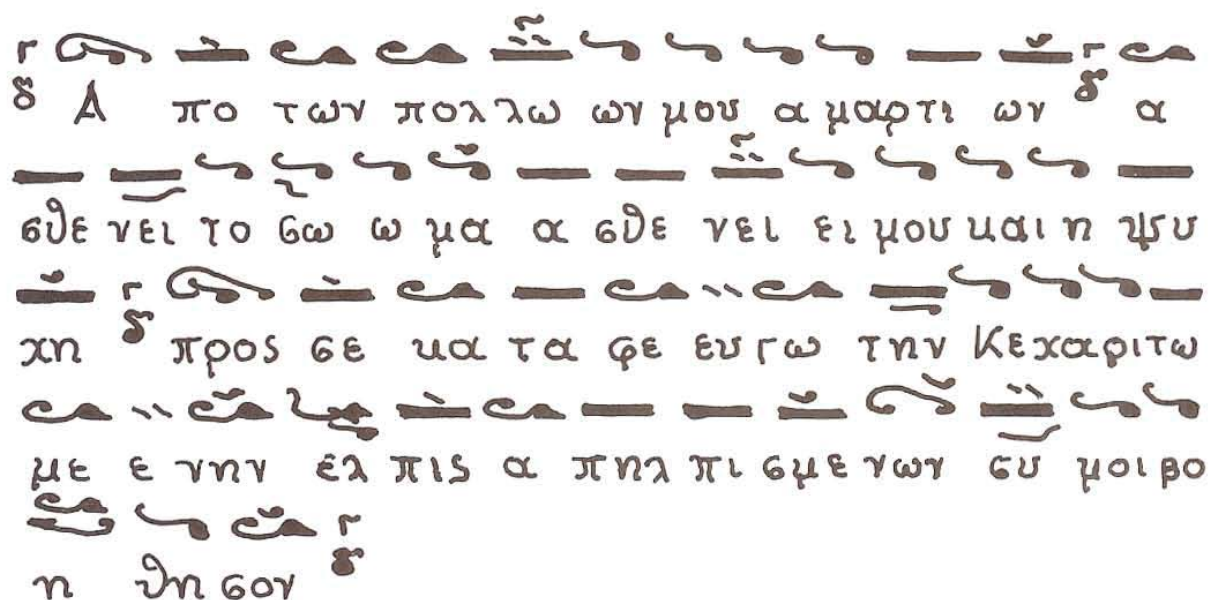 Α πο των πολ λω ων μου α μαρτι ων α
σθε νει το σω ω μα α σθε νει ει μου και η ψυ
χη προς σε κα τα φε ευ γω την Κε χα ρι τω
με ε νην ελ πις α πηλ πι σμε νων συ μοι βο
η θη σον